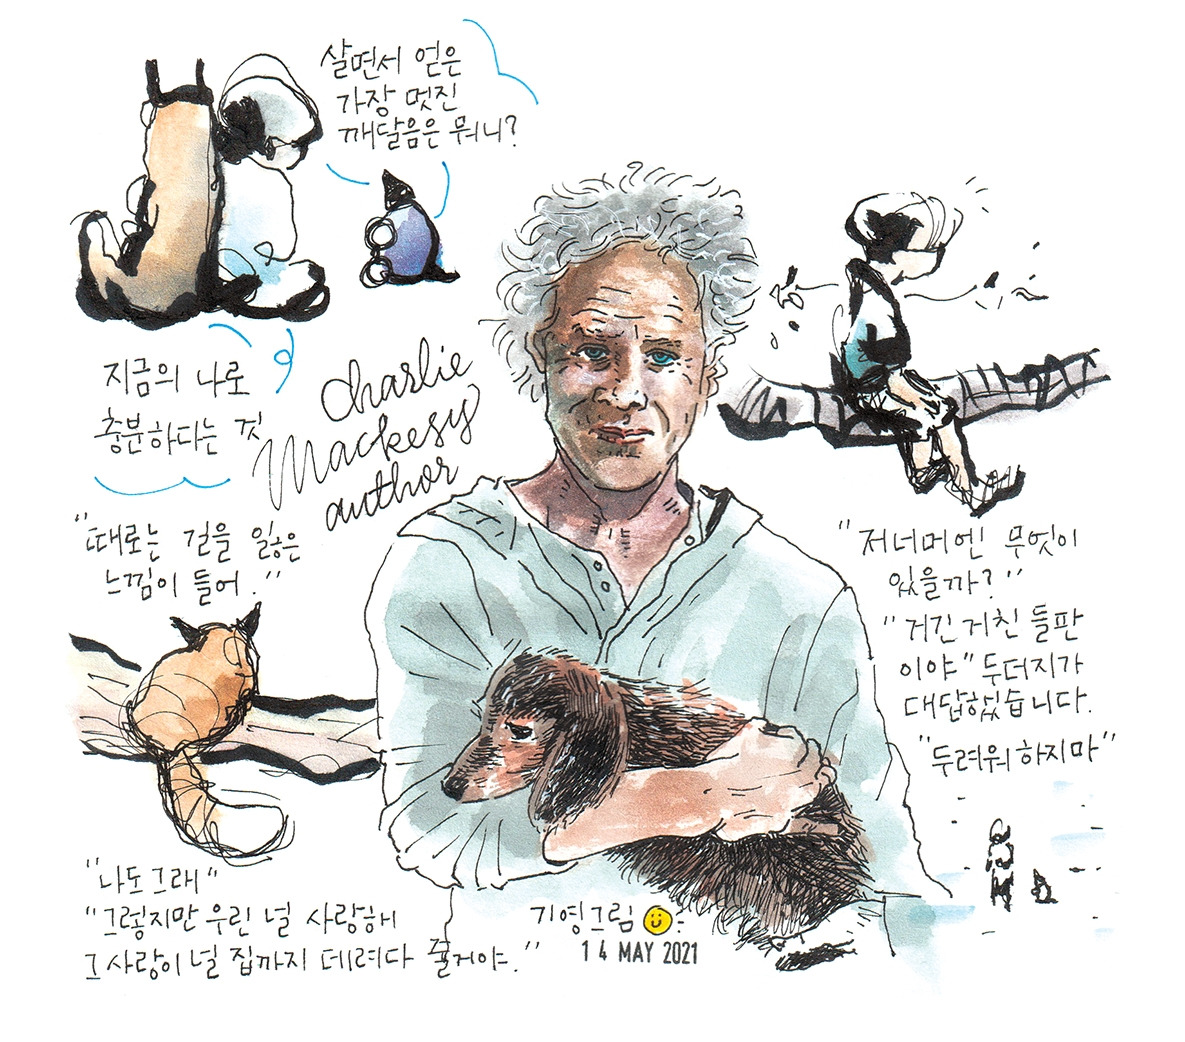 살면서 얻은
가장 멋진
깨달음은 뭐니?
지금의 나로
충분하다는 것
charlie
mackesy
author
"때로는 길을 잃은
느낌이 들어."
"나도 그래"
"그렇지만 우린 널 사랑해
그 사랑이 널 집까지 데려다 줄거야."
음
"저 너머엔 무엇이
있을까?"
"거긴 거친 들판
이야" 두더지가
대답했습니다.
"두려워하지마"
기영그림
14 MAY 2021